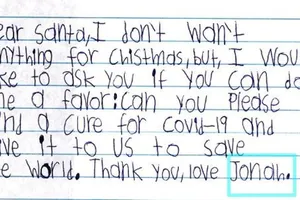 ear Santa, I don't want
nything for Chistmas, but, I wou
ke to ask you if you can do
e a favor: Can you Please
nd a cure for covid-19 and
ve it to us to save
e world. Thank you, love Jonah.